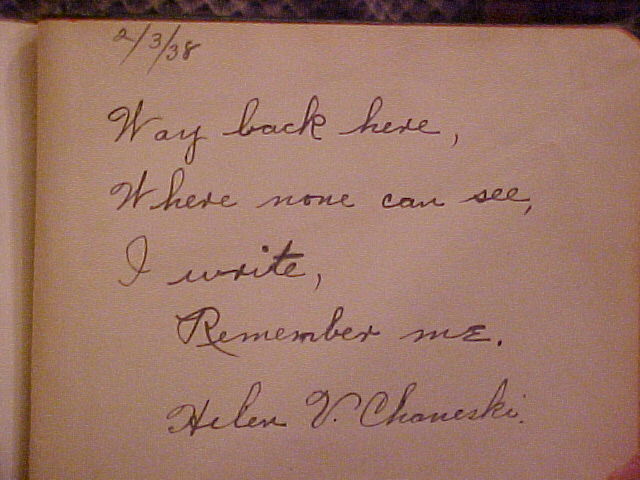 2/3/38
Way back here,
Where none can see,
I write,
Remember me.
Helen V. Chaneski.